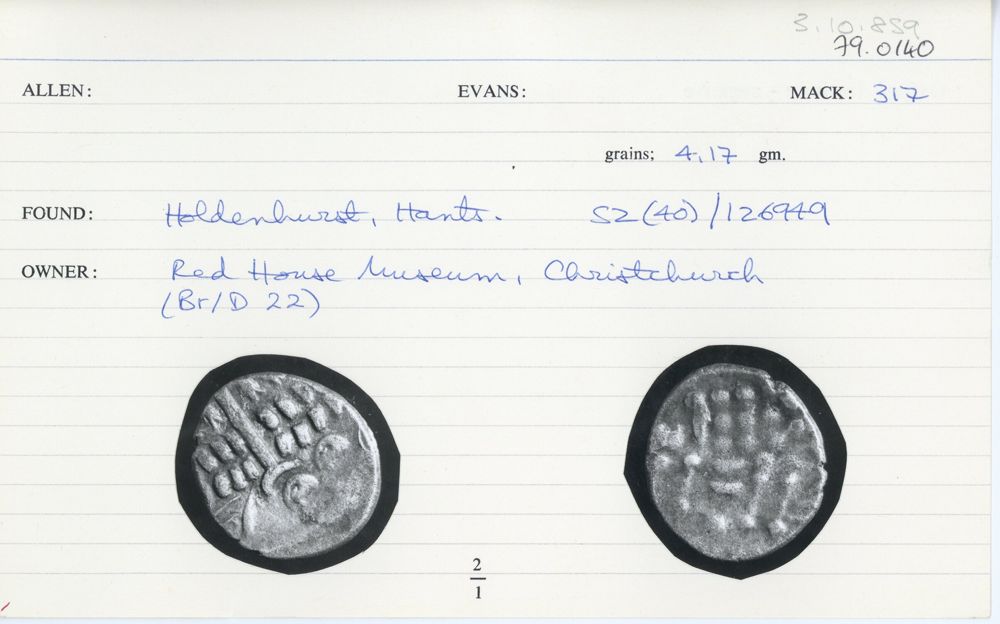 3.10.859
79.0140
ALLEN: EVANS: MACK: 317
grains; 4.17 gm.
FOUND: Holdenhurst, Hants. SZ(40)/126949
OWNER: Red House Museum, Christchurch
(Br/D 22)
2
1